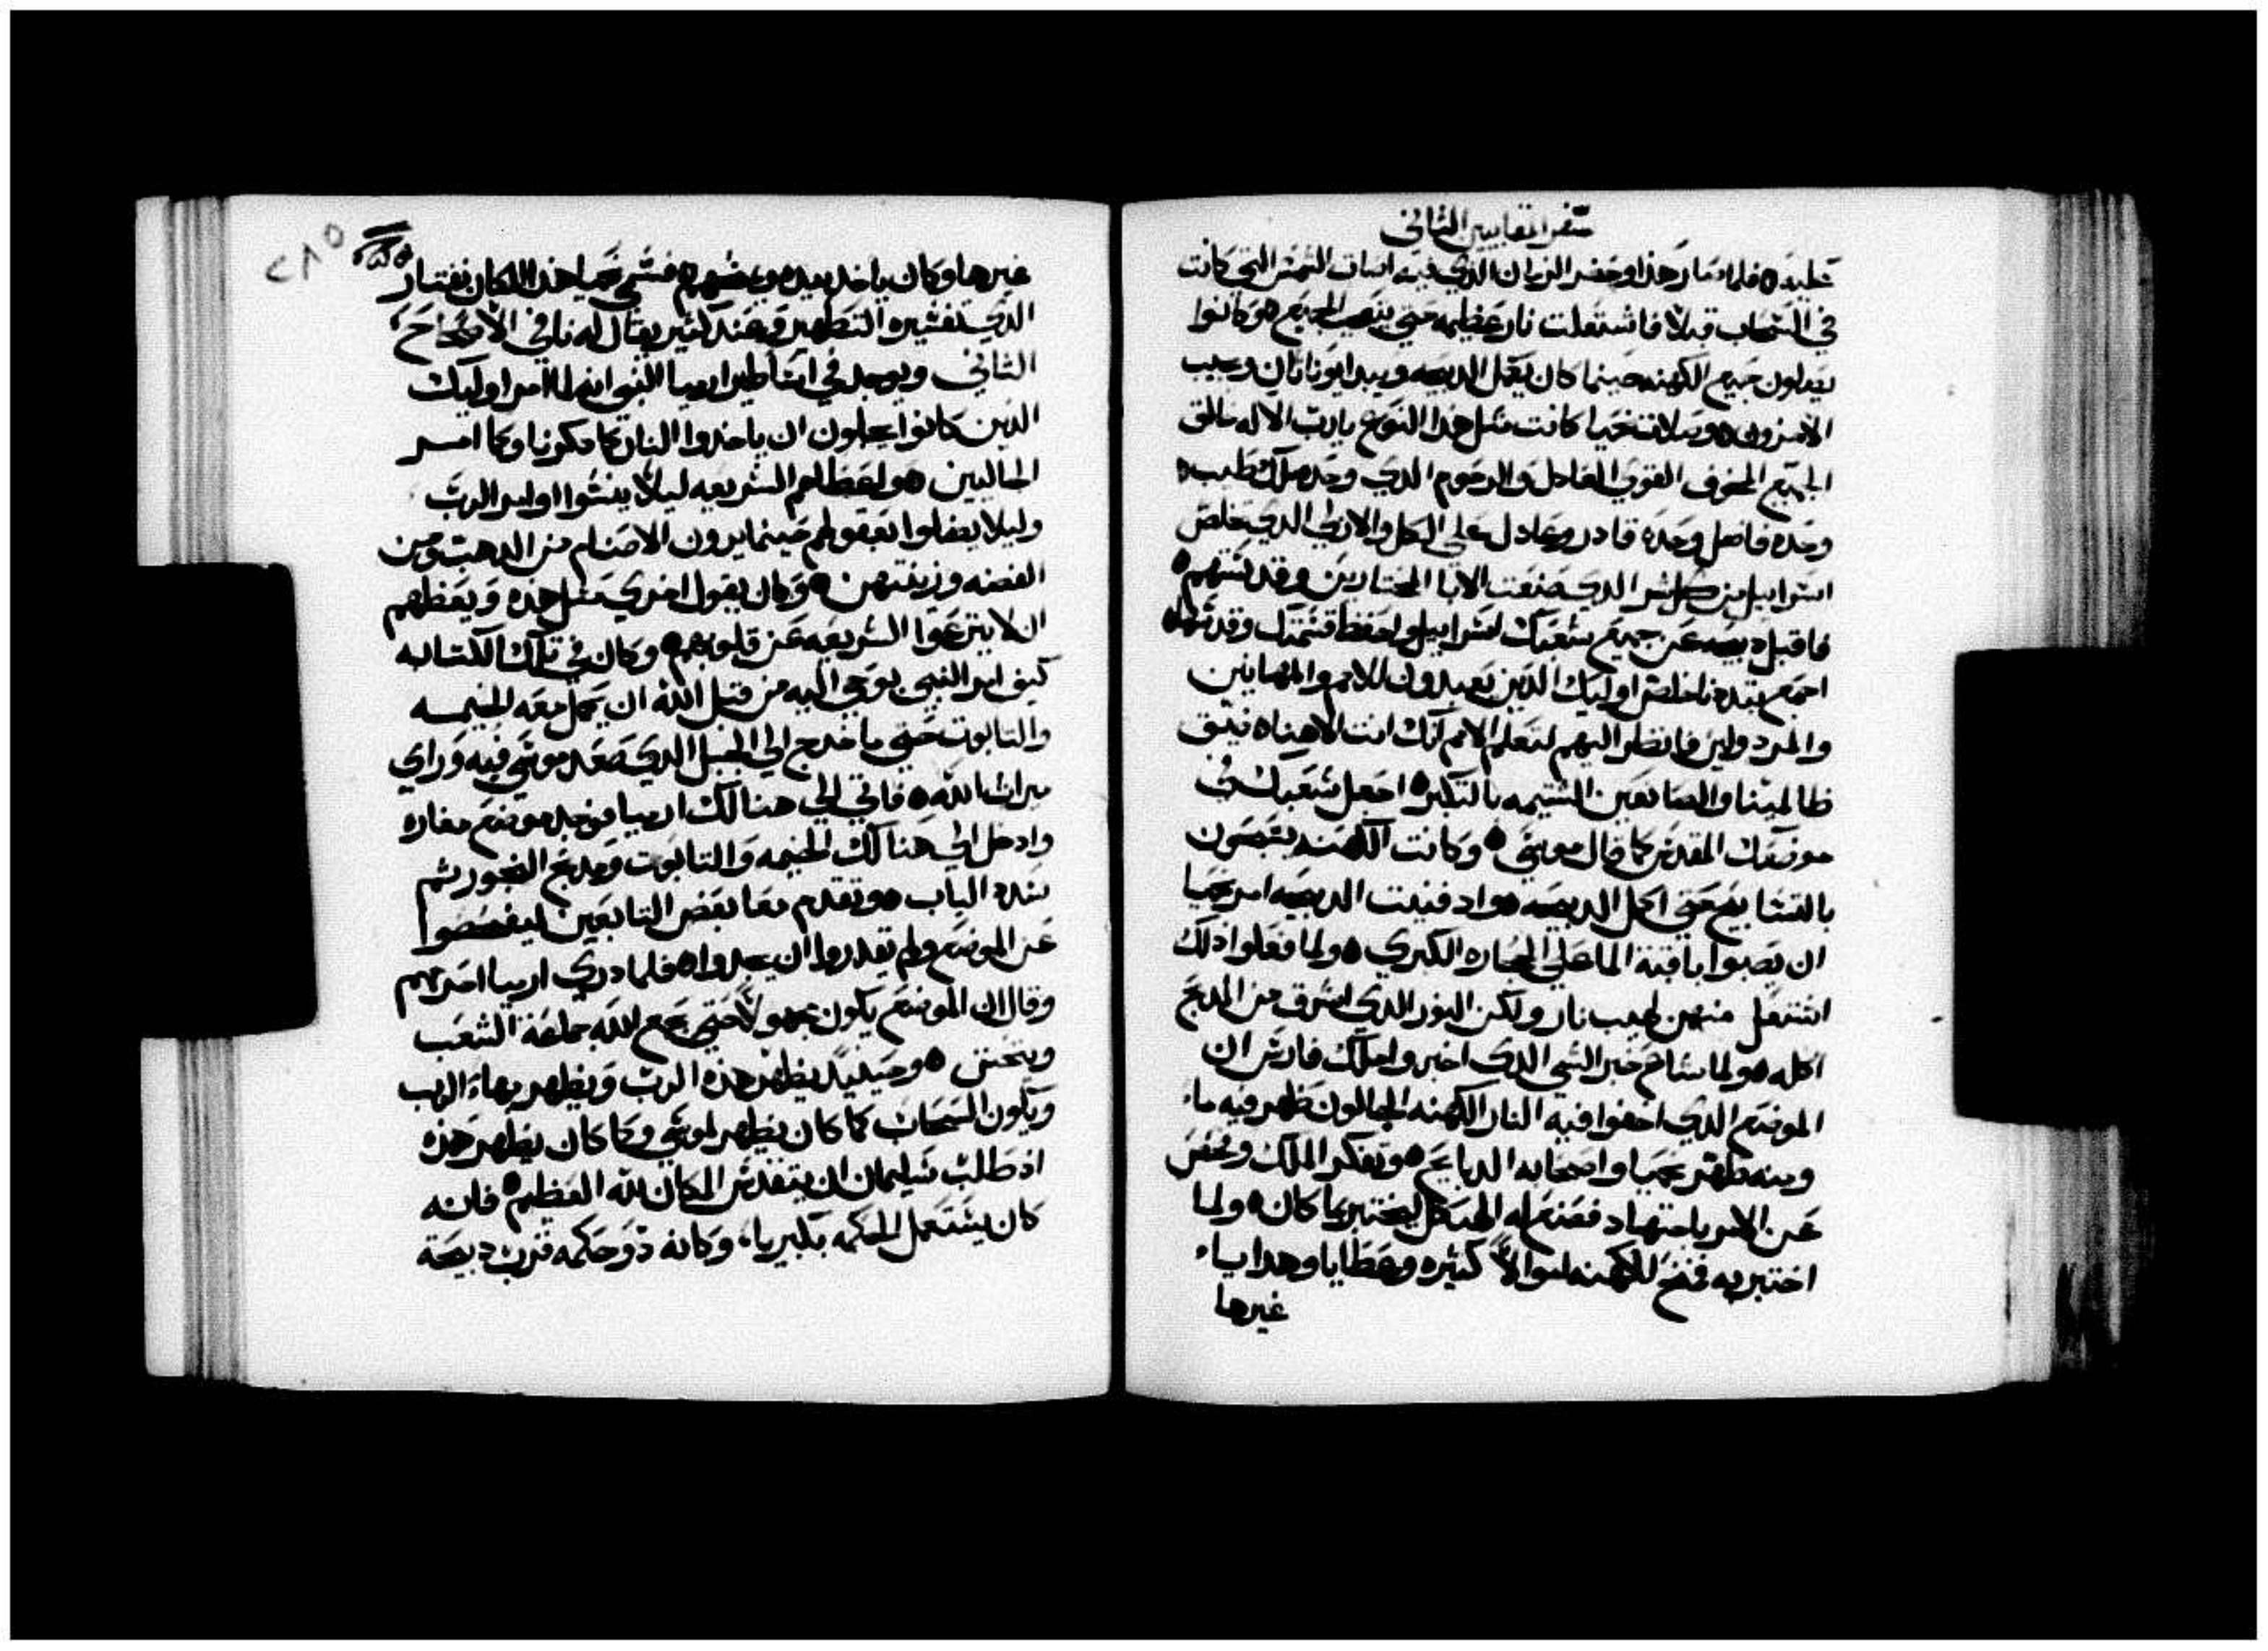 سفر المقابيين الثاني
عليه ه فلما صار هذا وحضر الزمان الذي فيه اساق الشمس التي كانت
في السحاب قبلا فاشتعلت نار عظيمه حتي يتعجب الجميع ه وكانوا
يصلون جميع الكهنه حينما كان يكمل الدبيحه ويبدا يوناثان ويجيب
الاخرون ه وصلاة نحميا كانت مثل هذا النوع يا رب الاله خالق
الجميع المخوف القوي العادل والرحوم الذي وحده ملك طيب ه
وحده فاضل وحده قادر وعادل علي الكل والازلي الذي يخلص
اسراييل من كل شر الذي صنعت الابا المختارين وقدستهم ه
فاقبل دبيحه عن جميع شعبك اسراييل واحفظ قسمتك وقدسها ه
اجمع تبددنا خلص اوليك الذين يعبدون للامم والمهانين
والمردولين فانظر اليهم لتعلم الامم انك انت الاهنا ه ضيق
ظالمينا والصانعين الشتيمه بالتكبر ه اجعل شعبك في
موضعك المقدس كما قال موسي ه وكانت الكهنه يتبعون
بالتسابيح حتي اكمل الدبيحه ه واد فنيت الدبيحه امر نحميا
ان يصبوا باقية الما علي الحجاره الكبري ه ولما فعلوا ذلك
اشتعل منهن لهيب نار ولكن النور الذي اشرق من المدبح
اكله ه ولما شاع خبر الشي الذي اخبروا ملك فارس ان
الموضع الذي اخفوا فيه النار الكهنه الجالون ظهر فيه ماء
ومنه طهر نحميا واصحابه الدبايح ه وتفكر الملك وفحص
عن الامر باجتهاد فصنع له الهيكل ليختبر بما كان ه ولما
اختبر به فمنح للكهنه اموالا كثيره وعطايا وهدايا
غيرها
٢٨٥
غيرها وكان ياخد بيده ويعطيهم ه فسمي نحميا هذا المكان نفتار
الذي تفسيره التطهير وعند كثير يقال له نافي الاصحاح
الثاني ويوجد في اساطير ارميا النبي انه لما امر اوليك
الذين كانوا يجلون ان ياخدوا النار كما دكرنا وكما امر
الجالبين ه واعطالهم الشريعه ليلا ينسوا اوامر الرب
وليلا يضلوا بعقولهم حينما يرون الاصنام من الدهب ومن
الفضه وزينتهن ه وكان يقول اخري مثل هذه ويعظهم
ان لا ينزعوا الشريعه عن قلوبهم ه وكان في تلك الكتابه
كيف امر النبي بوحي اليه من قبل الله ان يحمل معه الخيمه
والتابوت حتي ما خرج الي الجبل الذي صعد موسي فيه وراي
ميراث الله ه فاتي الي هنالك ارميا فوجد موضع مغاره
وادخل الي هنالك الخيمه والتابوت ومدبح البخور ثم
سد الباب ه وتقدم معا بعض التابعين ليفحصوا
عن الموضع ولم يقدروا ان يجدوا ه فلما دري ارميا احرمهم
وقال ان الموضع يكون مجهولا حتي يجمع الله جماعة الشعب
ويتحنن ه وحينيد يظهر هذه الرب ويظهر بهاء الرب
ويكون السحاب كما كان يظهر لموسي وكما كان يظهر هذه
اذ طلب سليمان ان يتقدس المكان لله العظيم ه فانه
كان يستعمل الحكمه بكبرياء وكانه ذو حكمه قرب دبيحة